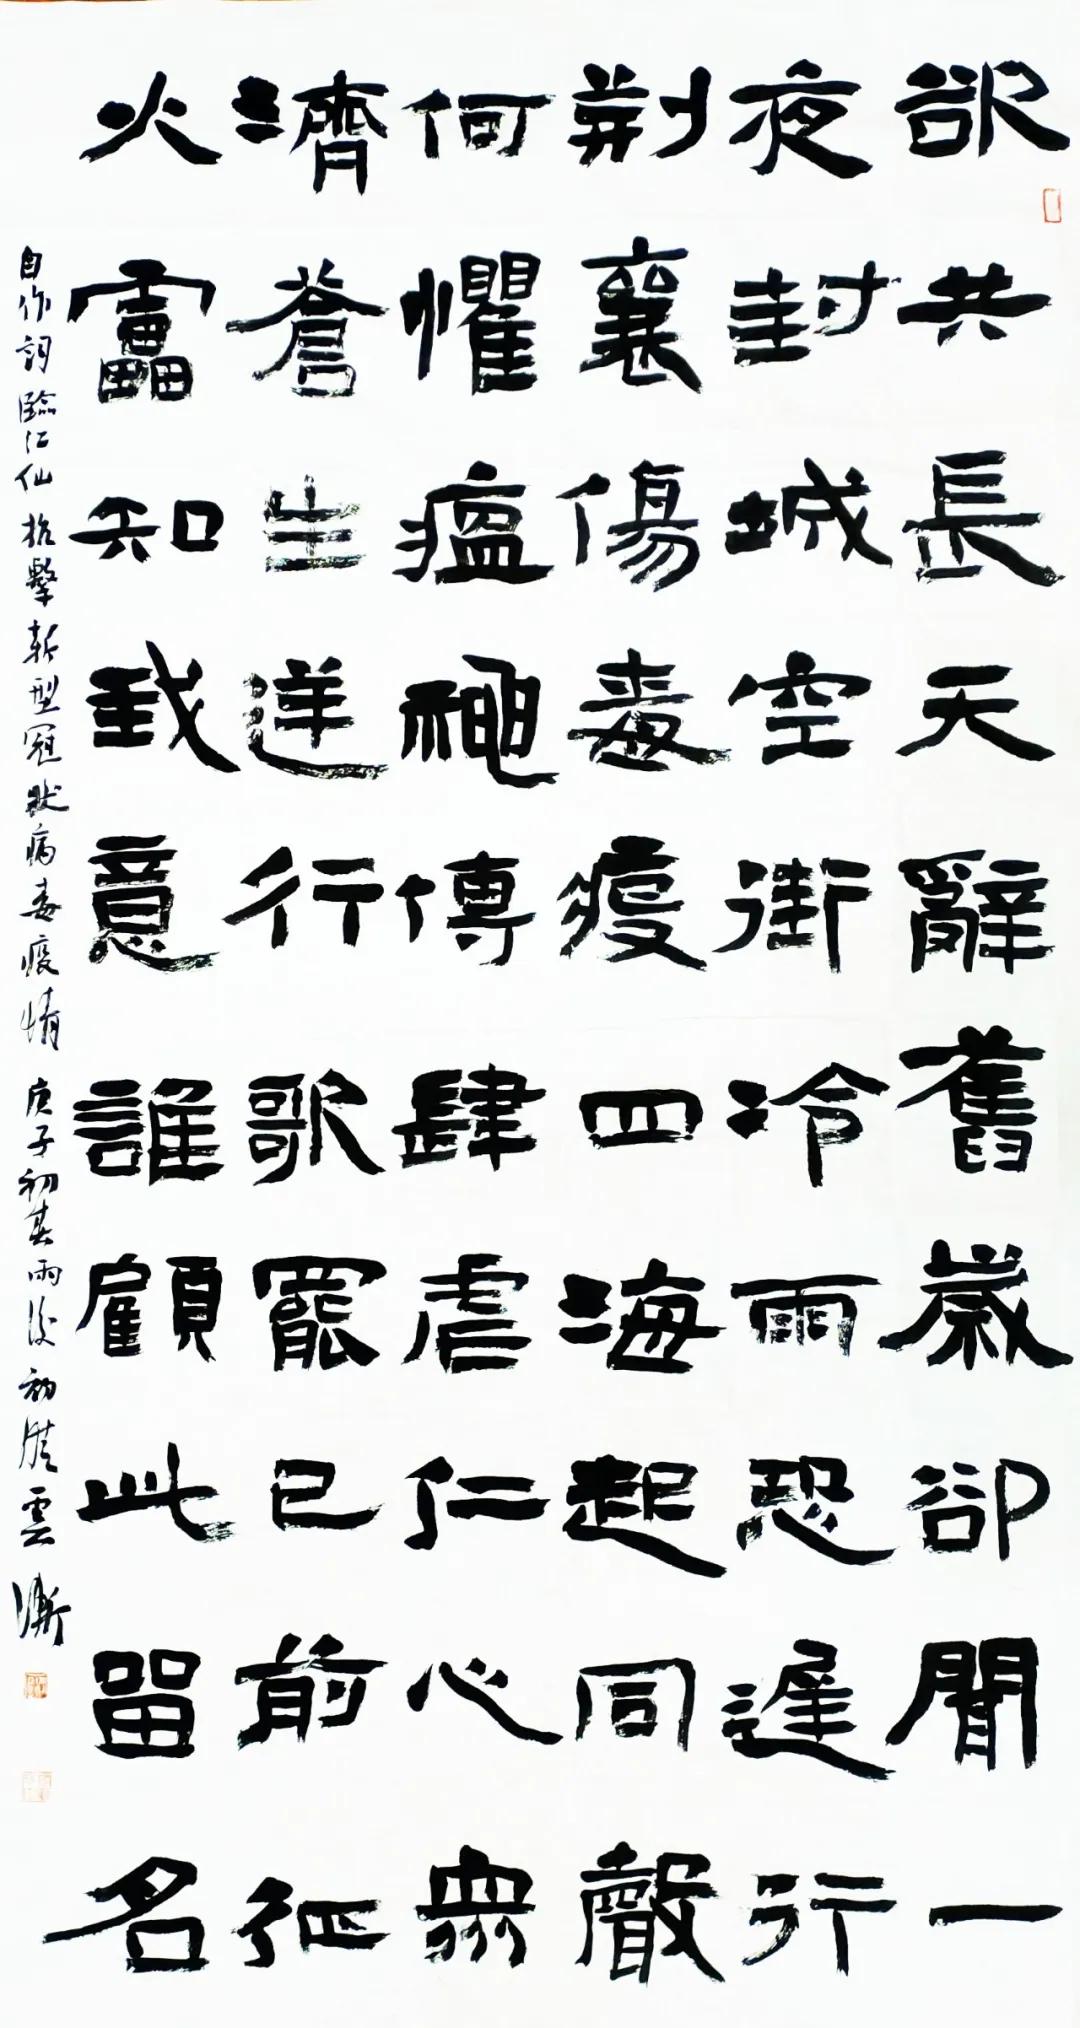 欲共長天辭舊歲卻聞一
夜封城空街冷雨恐遲行
荆襄傷毒疫四海起同聲
何懼瘟神傳肆虐仁心衆
濟蒼生送行歌罷已前征
火雷知我意誰顧此留名
自作詞臨江仙抗擊新型冠狀病毒疫情庚子初春雨後初度雲漸